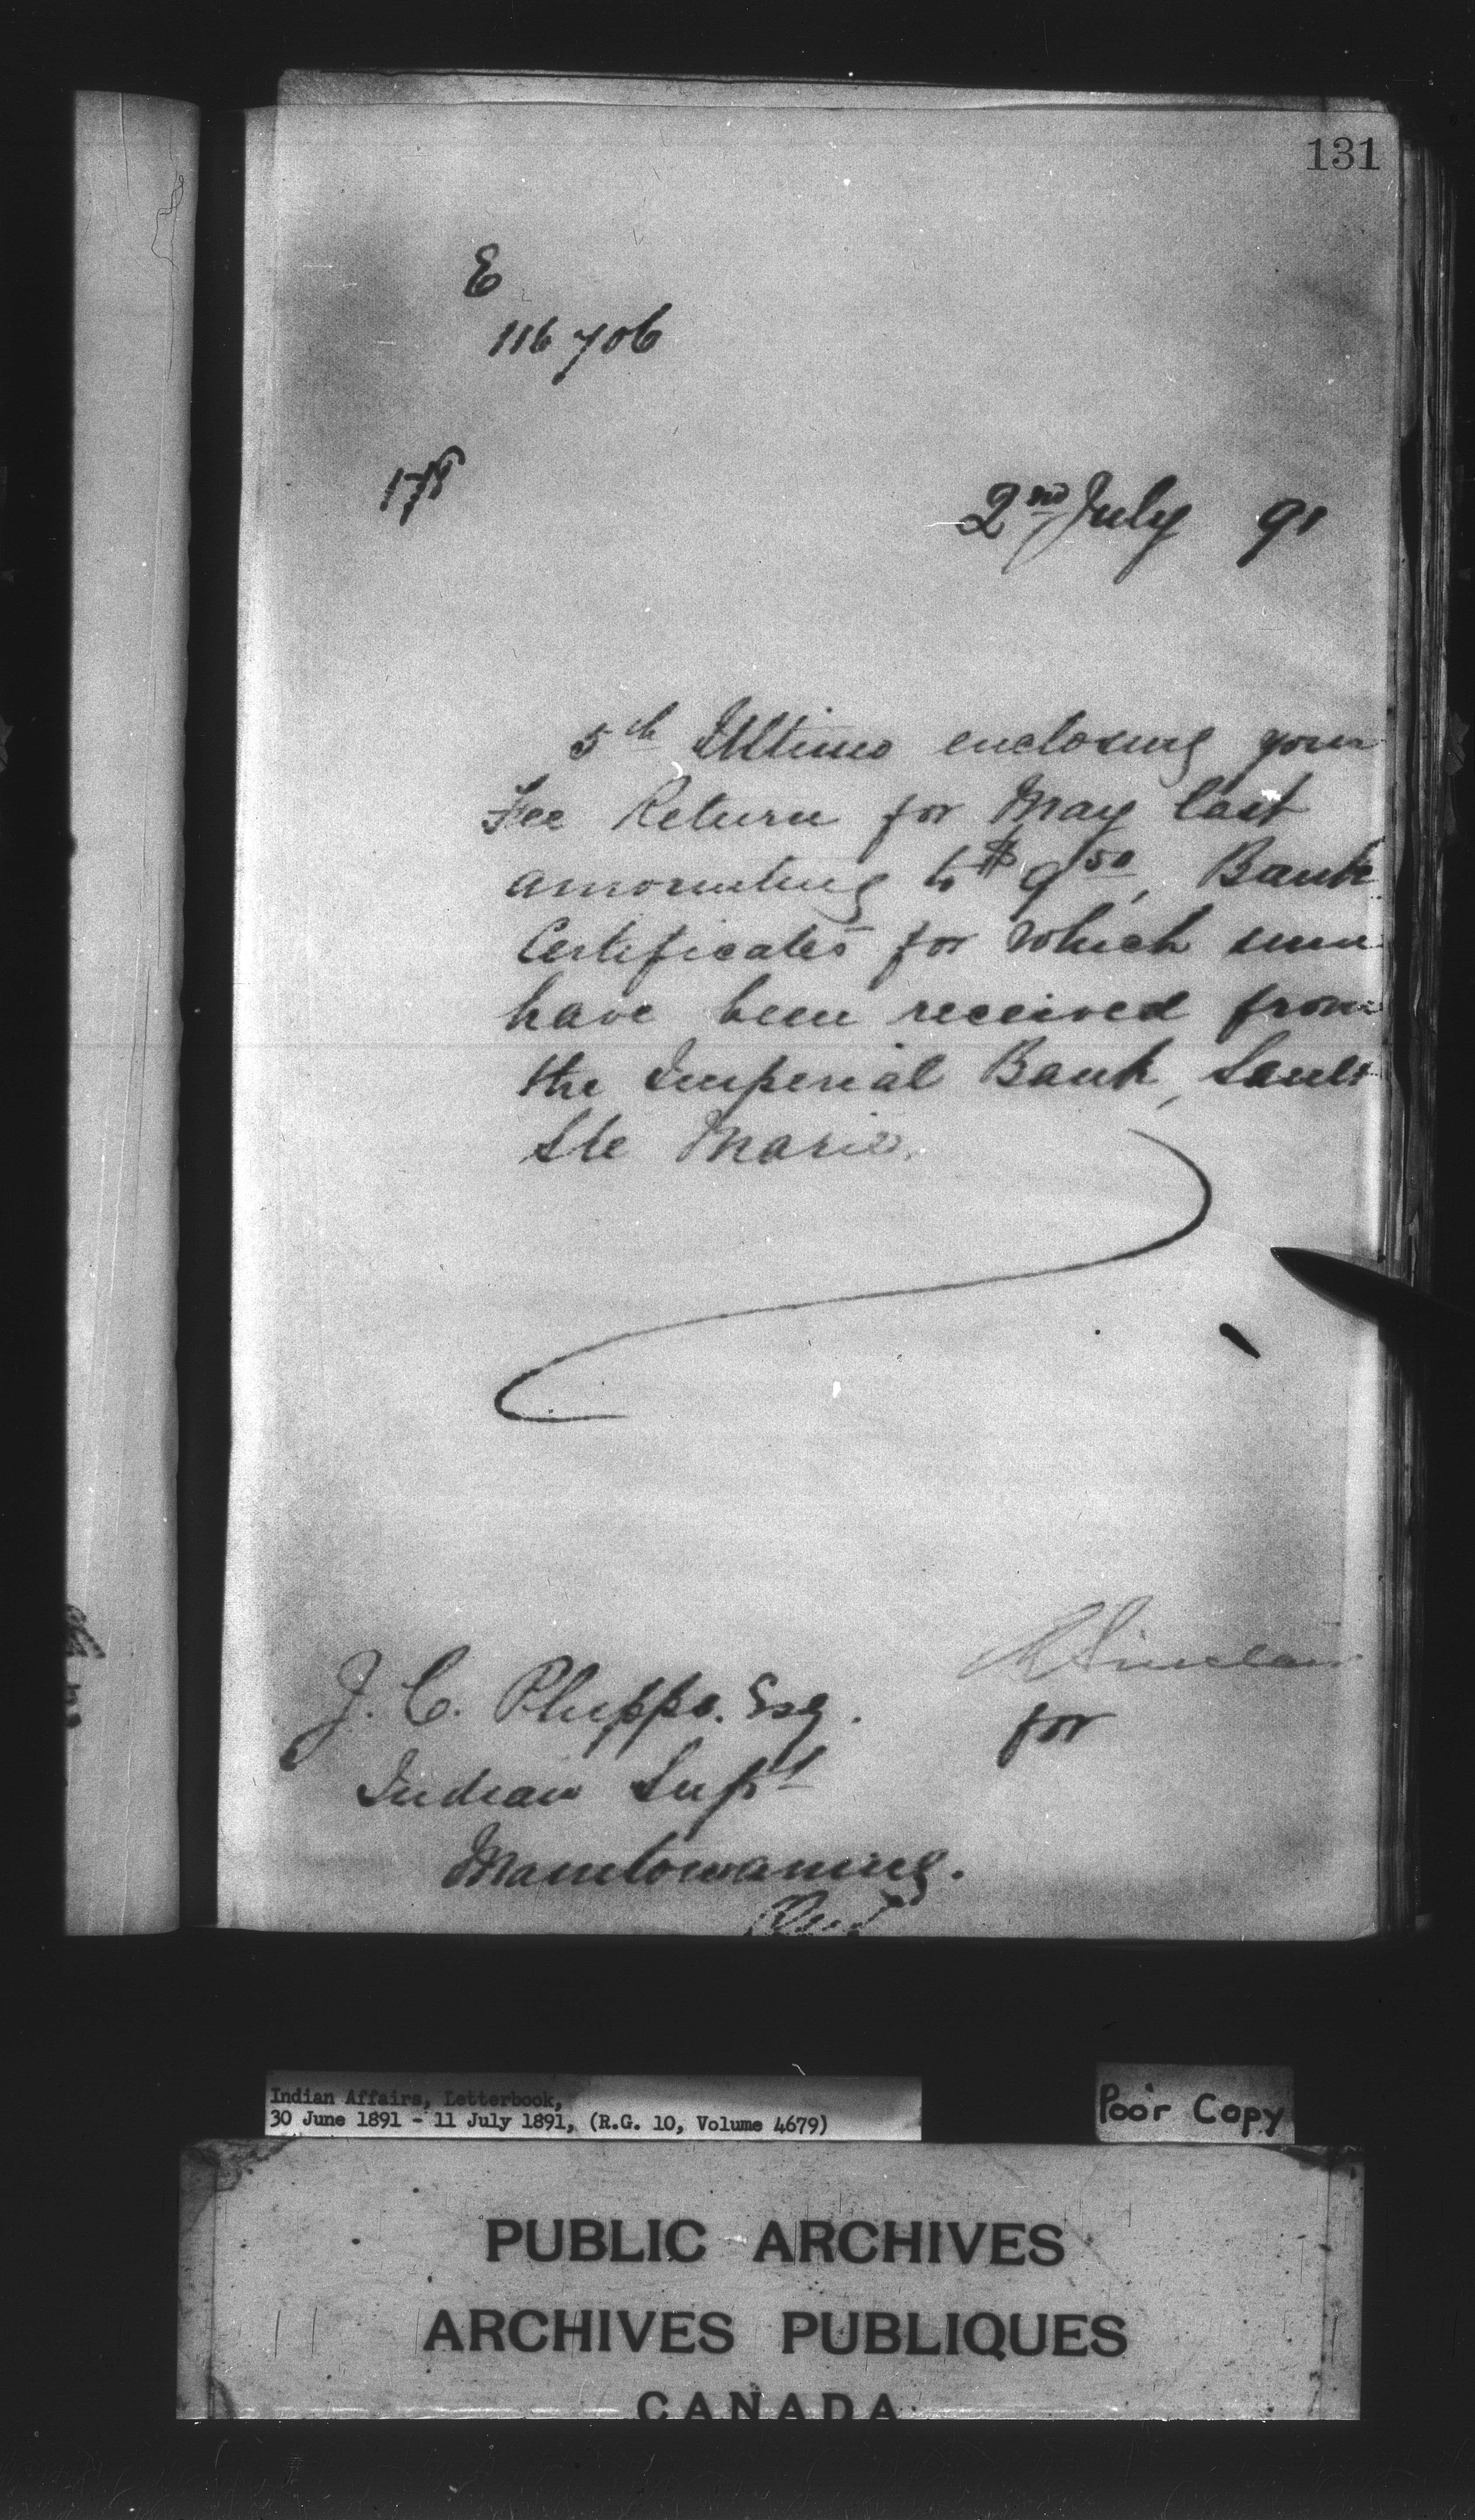 131
E
116706
178
2nd July 91
5th Ultimo enclosing your
Fee Return for May last
amounting to $9 50, Bank
Certificates for which sum
have been received from
the Imperial Bank, Sault
Ste Marie.
R Sinclair
J. C. Phipps. Esq.
for
Indian Supt
Manitowaning.
Ont
Indian Affairs, Letterbook,
30 June 1891 - 11 July 1891, (R.G. 10, Volume 4679)
Poor Copy
PUBLIC ARCHIVES
ARCHIVES PUBLIQUES
CANADA